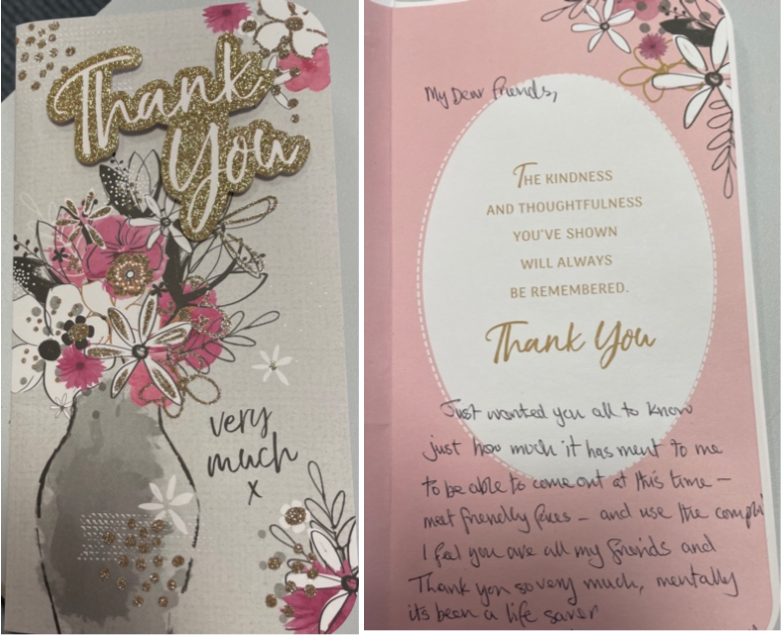 Thank
You
very
much
x
My Dear friends,
THE KINDNESS
AND THOUGHTFULNESS
YOU'VE SHOWN
WILL ALWAYS
BE REMEMBERED.
Thank You
Just wanted you all to know
just how much it has ment to me
to be able to come out at this time –
meet friendly faces – and use the
I feel you are all my friends and
Thank you so very much, mentally
its been a life saver